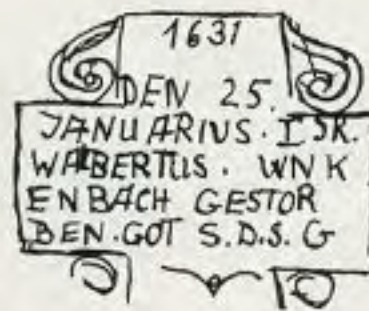 1631
DEN 25.
JANUARIUS. ISR.
WABERTUS. WNK
ENBACH GESTOR
BEN.GOT S.D.S. G